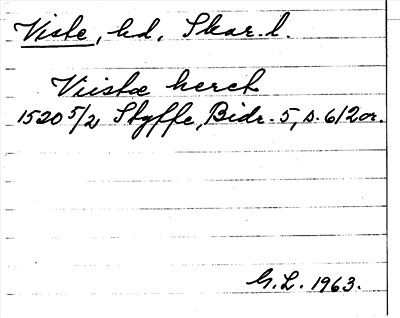 Viste, hd, Skar. l.
Viistæ heret
1520 5/2 Styffe, Bidr. 5, s. 612 or.
G. L. 1963.